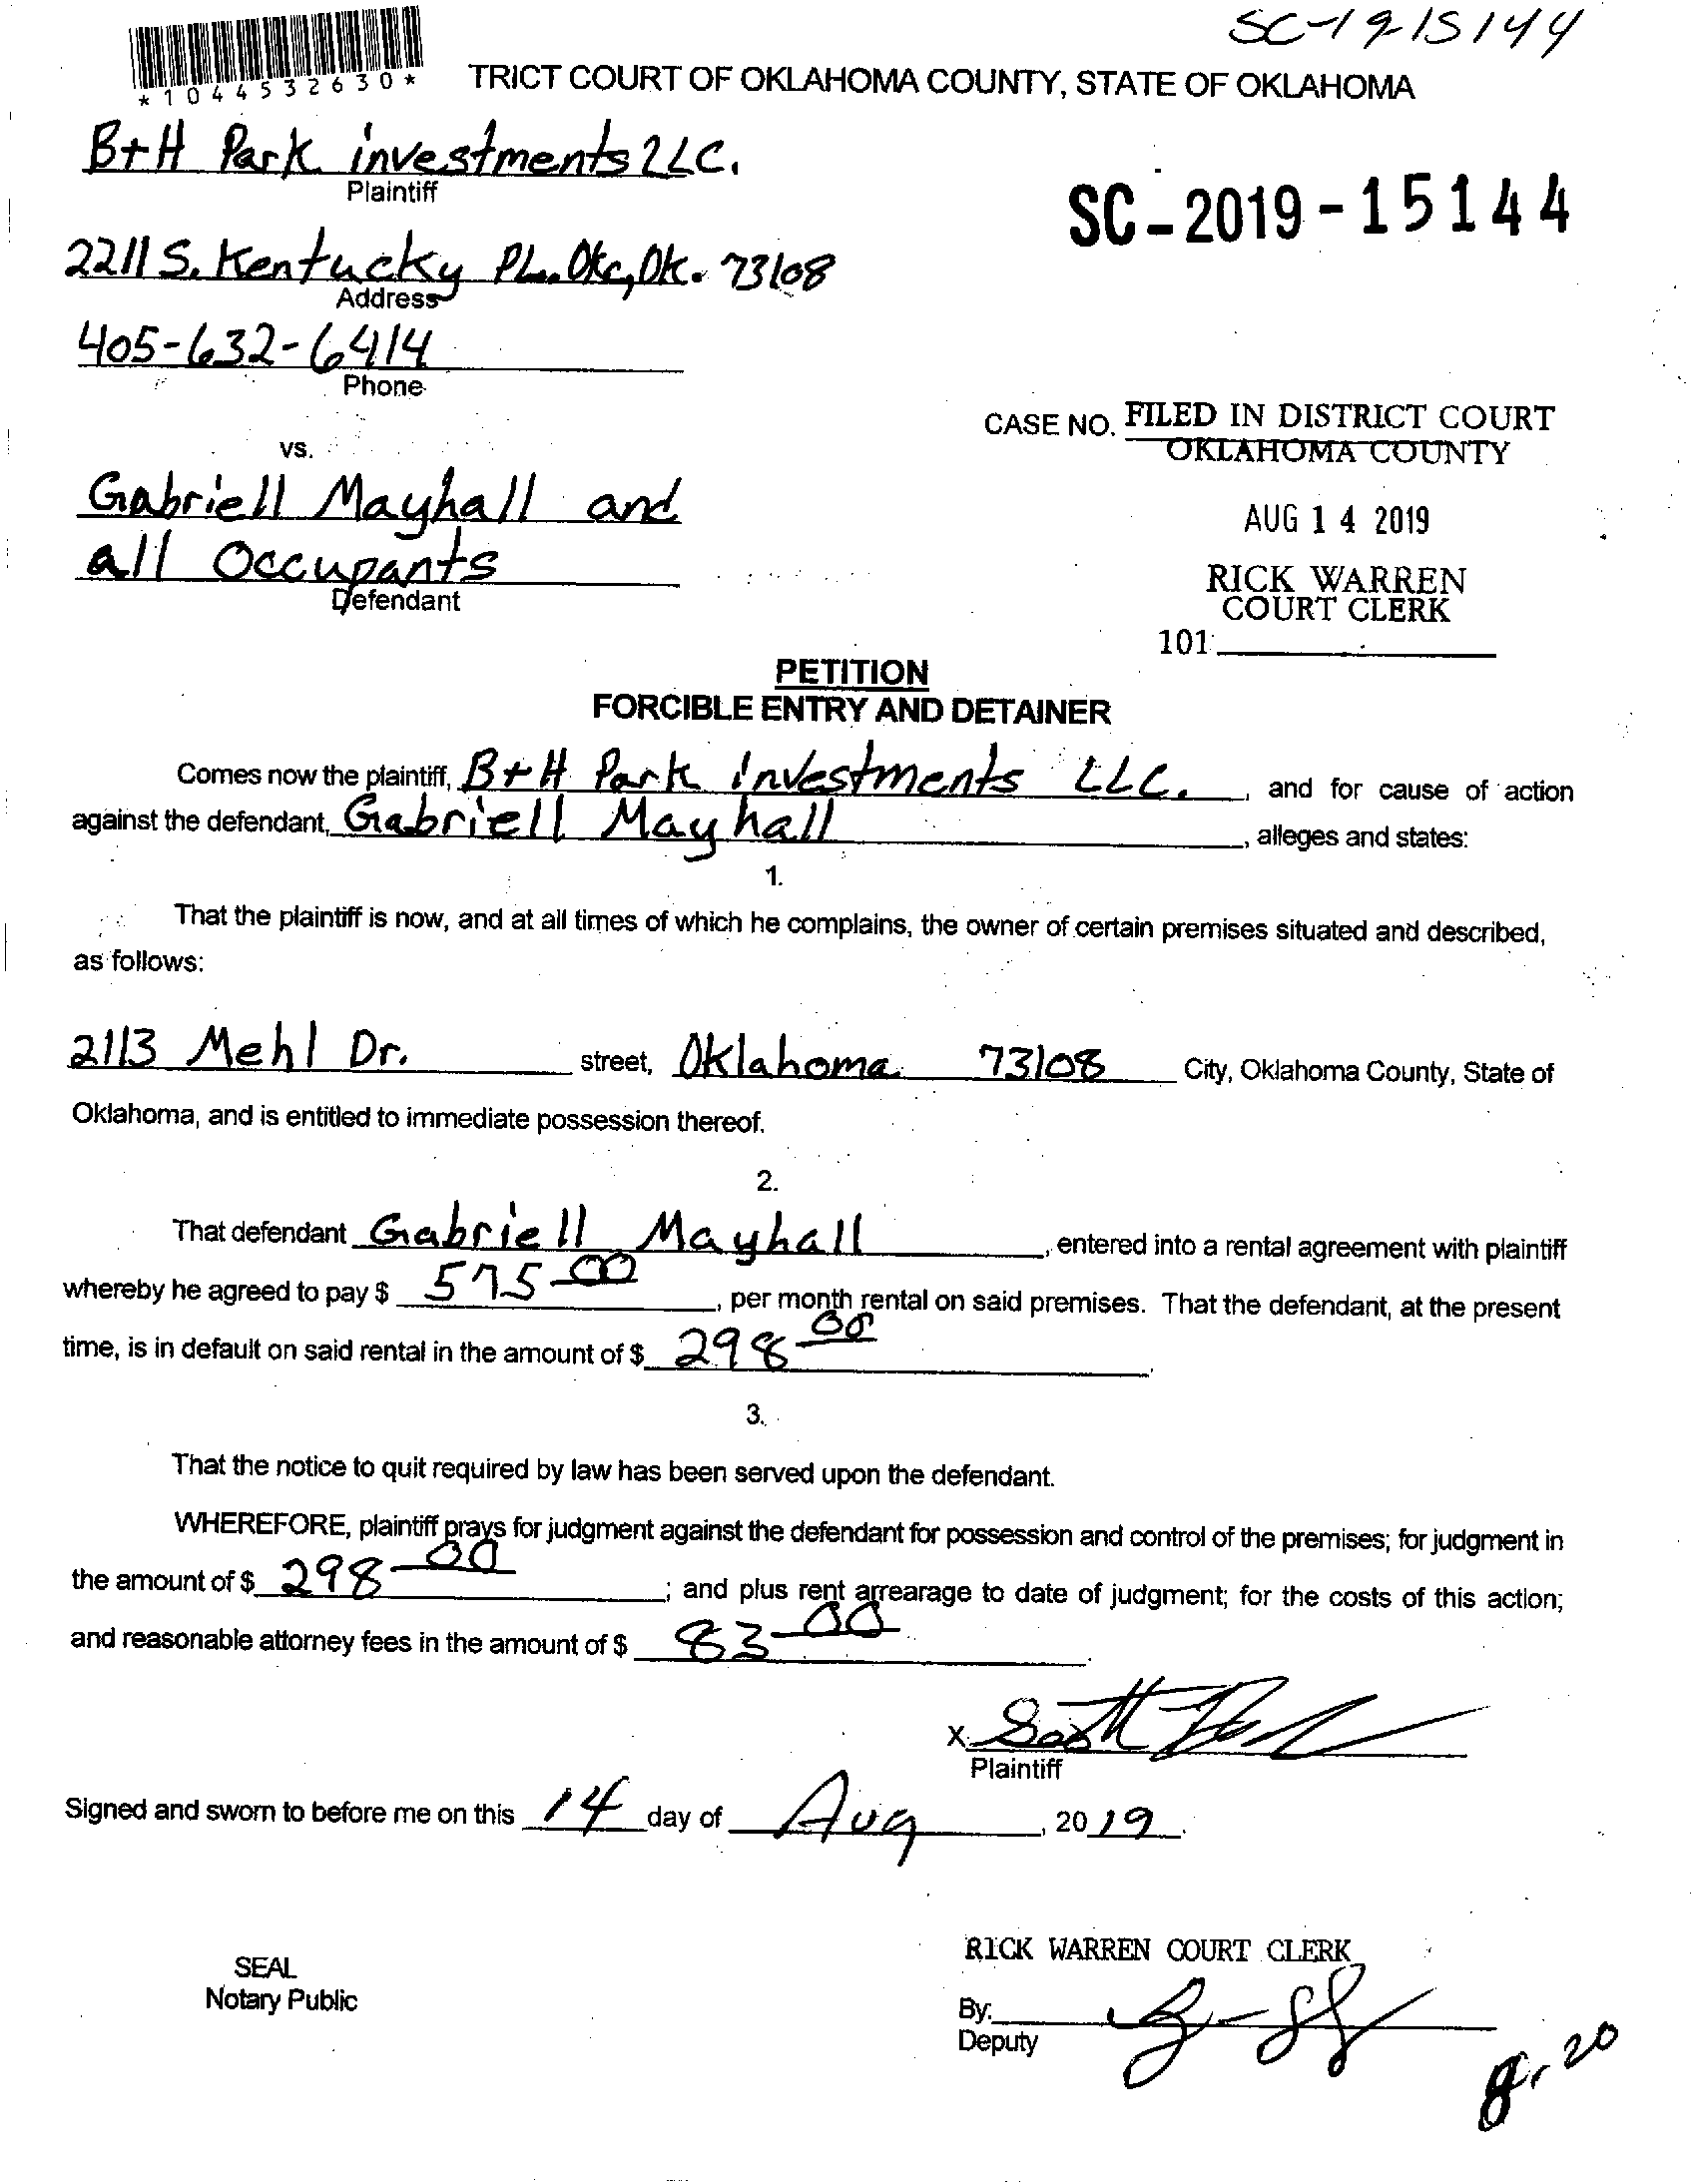 SC-19-15144
*1044532630*
TRICT COURT OF OKLAHOMA COUNTY, STATE OF OKLAHOMA
B+H Park investments LLC.
Plaintiff
SC-2019-15144
2211 S. Kentucky PL. Okc, Ok. 73108
Address
405-632-6414
Phone
CASE NO. FILED IN DISTRICT COURT
OKLAHOMA COUNTY
vs.
Gabriell Mayhall and
all Occupants
Defendant
AUG 14 2019
RICK WARREN
COURT CLERK
101
PETITION
FORCIBLE ENTRY AND DETAINER
Comes now the plaintiff, B+H Park investments LLC. , and for cause of action
against the defendant, Gabriell Mayhall , alleges and states:
1.
That the plaintiff is now, and at all times of which he complains, the owner of certain premises situated and described,
as follows:
2113 Mehl Dr. street, Oklahoma 73108 City, Oklahoma County, State of
Oklahoma, and is entitled to immediate possession thereof.
2.
That defendant Gabriell Mayhall , entered into a rental agreement with plaintiff
whereby he agreed to pay $ 575 00 , per month rental on said premises. That the defendant, at the present
time, is in default on said rental in the amount of $ 298 00 .
3.
That the notice to quit required by law has been served upon the defendant.
WHEREFORE, plaintiff prays for judgment against the defendant for possession and control of the premises; for judgment in
the amount of $ 298 00 ; and plus rent arrearage to date of judgment; for the costs of this action;
and reasonable attorney fees in the amount of $ 83 00 .
X Scott
Plaintiff
Signed and sworn to before me on this 14 day of Aug , 20 19 .
RICK WARREN COURT CLERK
SEAL
Notary Public
By:
Deputy
8, 20